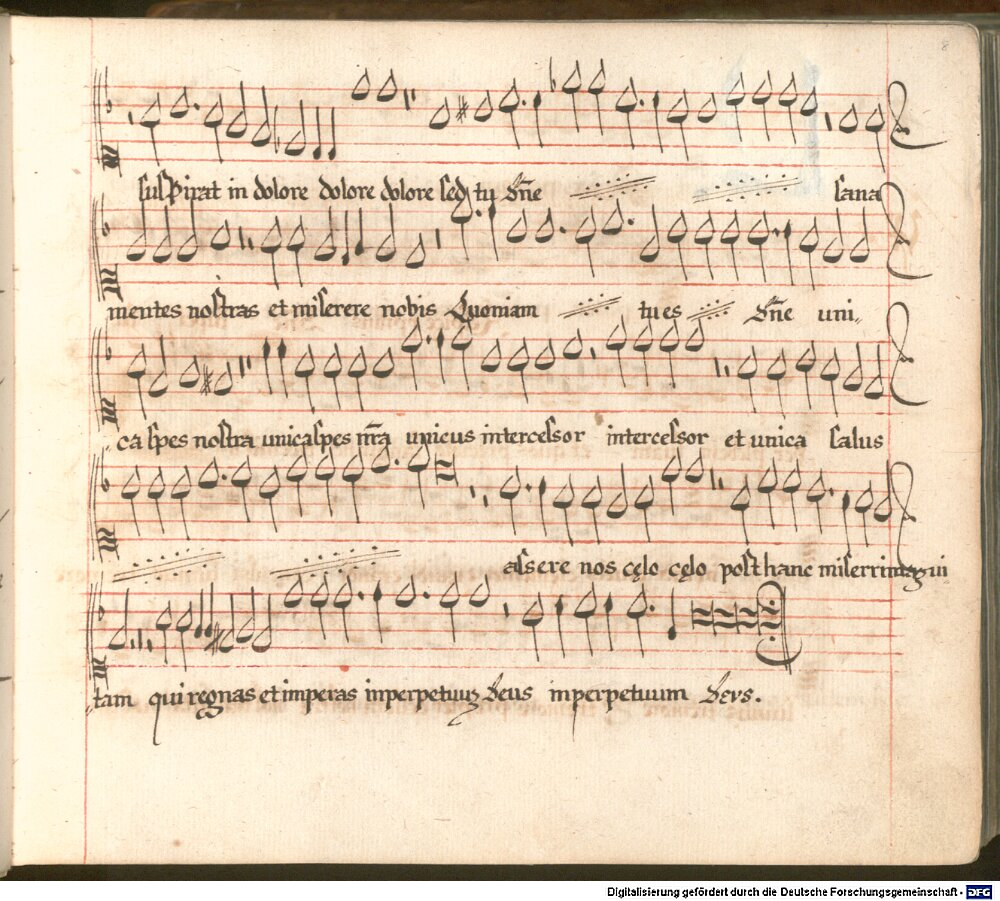 8
suspirat in dolore dolore dolore sed tu Dñe sana
mentes nostras et miserere nobis Quoniam tu es Dñe uni-
ca spes nostra unica spes nr̃a unicus intercessor intercessor et unica salus
assere nos cęlo cęlo post hanc miserrimaz vi-
tam qui regnas et imperas inperpetuuz deus inperpetuum Deus.
Digitalisierung gefördert durch die Deutsche Forschungsgemeinschaft - DFG